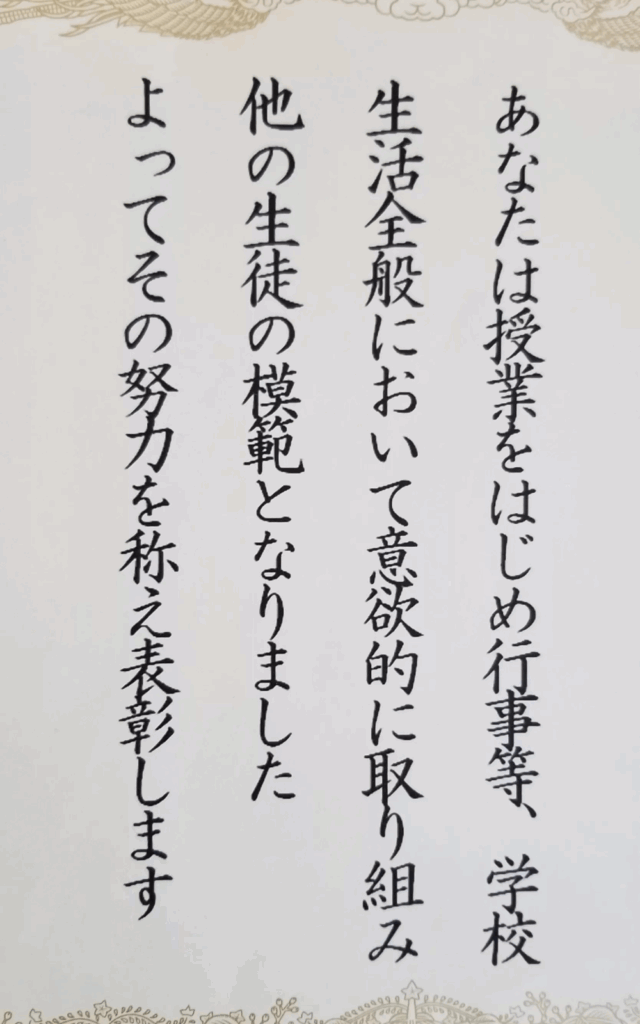 あなたは授業をはじめ行事等、学校
生活全般において意欲的に取り組み
他の生徒の模範となりました
よってその努力を称え表彰します